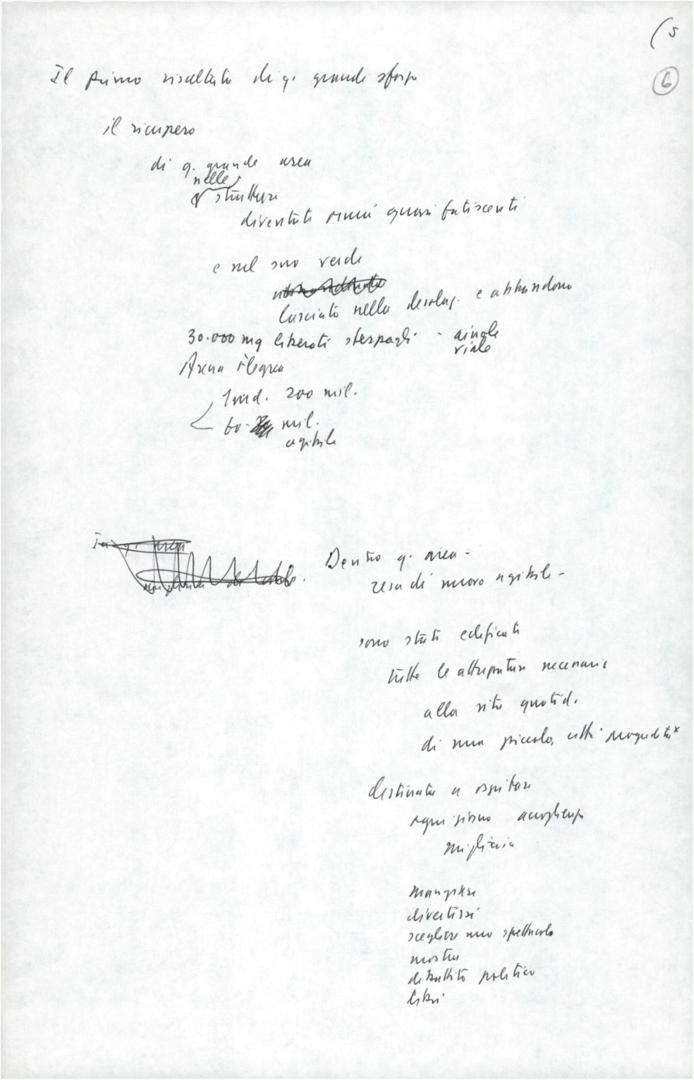 (5
6
Il primo risultato di q. grande sforzo
il ricupero
di q. grande area
nelle
strutture
diventate ormai quasi fatiscenti
e nel suo verde
lasciato nella desolaz. e abbandono
30.000 mq liberati sterpagli - aiuole
viale
Arena Flegrea
1 md. 200 mil.
60. mil.
agibile
Dentro q. area -
resa di nuovo agibile -
sono state edificate
tutte le attrezzature necessarie
alla vita quotid.
di una piccola, città
destinata a ospitare
ogni giorno
migliaia
mangiare
divertirsi
scegliere uno spettacolo
mostra
dibattito politico
libri